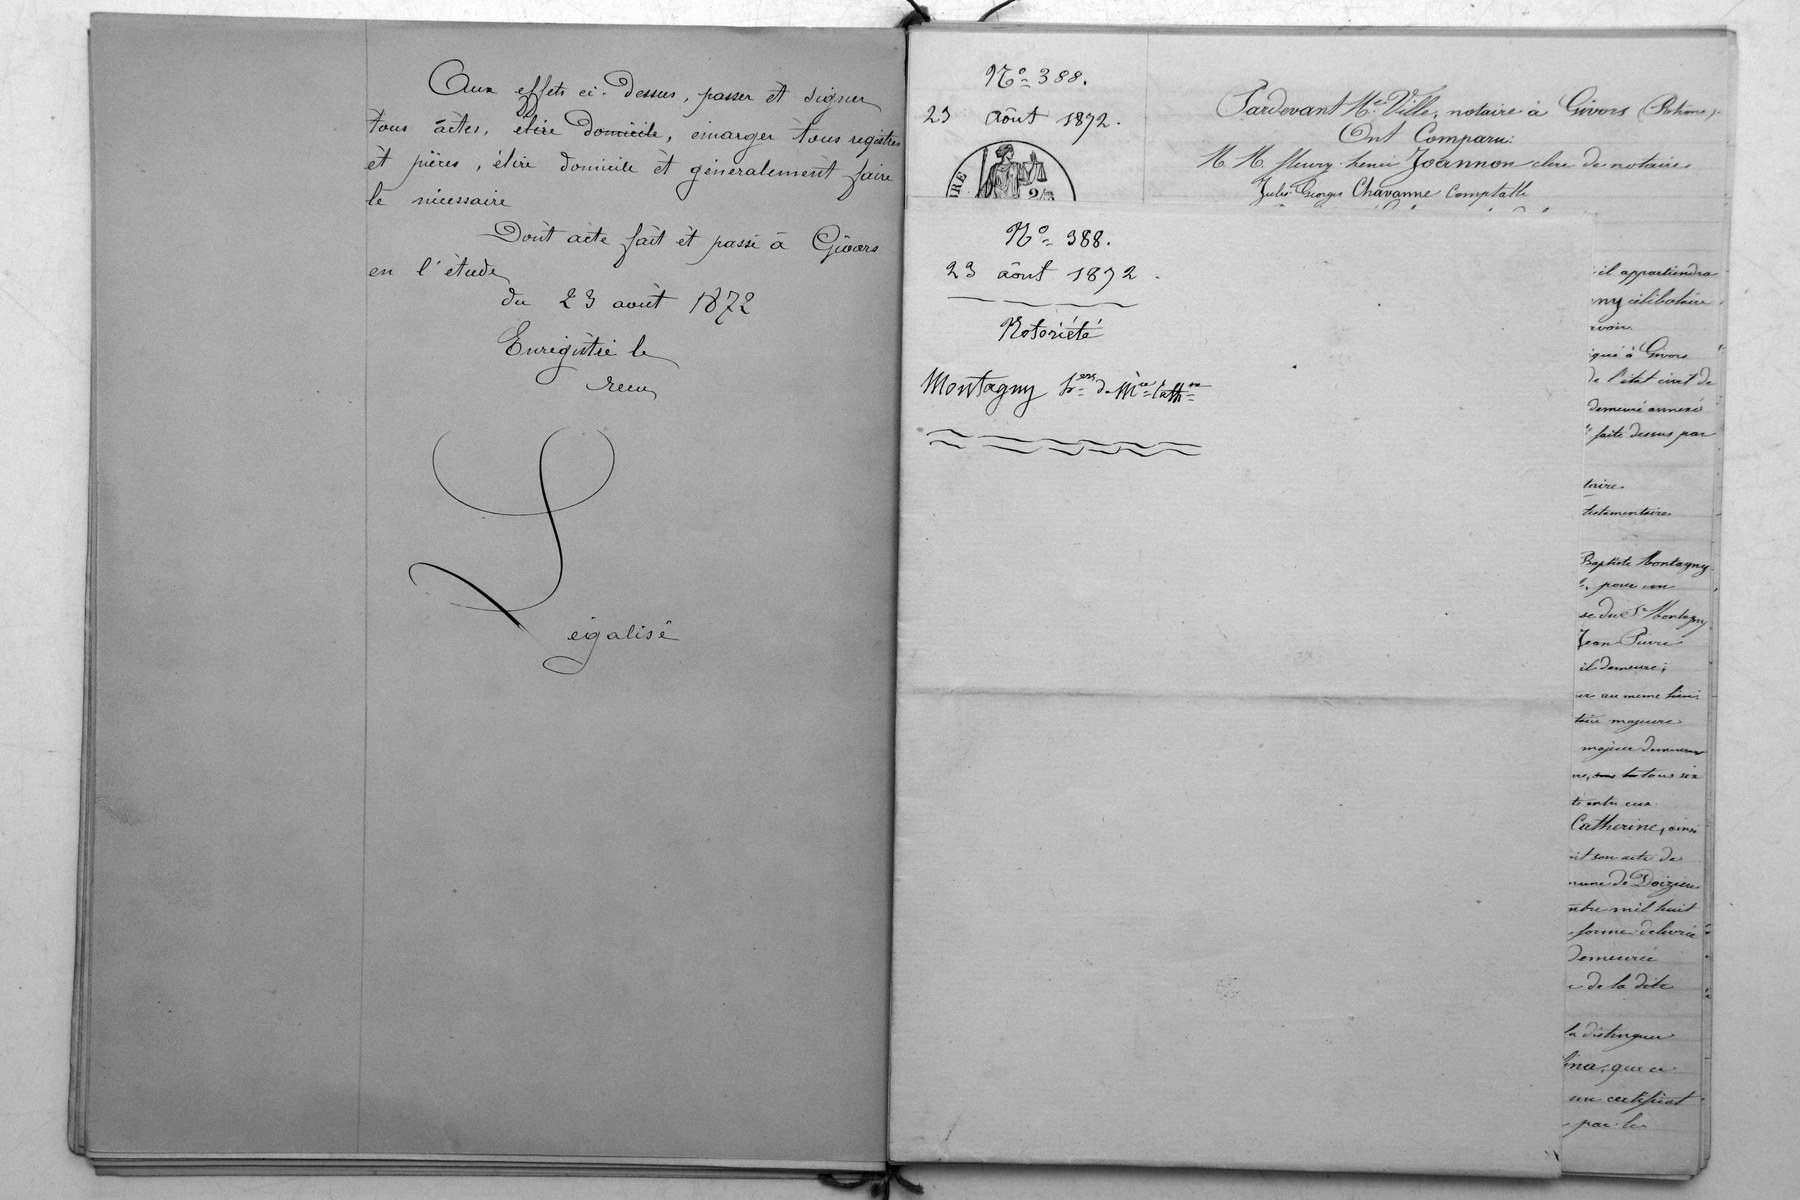 Aux effets ci-dessus, passer et signer
tous actes, élire domicile, émarger tous registres
et pièces, élire domicile et généralement faire
le nécessaire
Dont acte fait et passé à Givors
en l'étude
du 23 août 1872
Enregistré le
recu
Légalisé
No 388.
23 août 1872.
Pardevant Me Ville, notaire à Givors (Rhône).
Ont Comparu:
M.M. fleury henri Joannon clerc de notaire
Jules Georges Chavanne Comptable
IRE
2
No 388.
23 août 1872.
Notoriété
Montagny hers de Mie Cathne
il appartiendra
ny célibataire
à Givors
de l'état civil de
demeuré annexé
faite dessus par
taire
testamentaire
Baptiste Montagny
pour un
se du Sr Montagny
Jean Pierre
il demeure;
er au même lieu;
majeure
majeur demeurant
tous six
entre eux
Catherine, ainsi
son acte de
mune de Doizieu
mbre mil huit
forme délivrée
demeurée
de la dite
la distinguer
ina, que ce
un certificat
par le